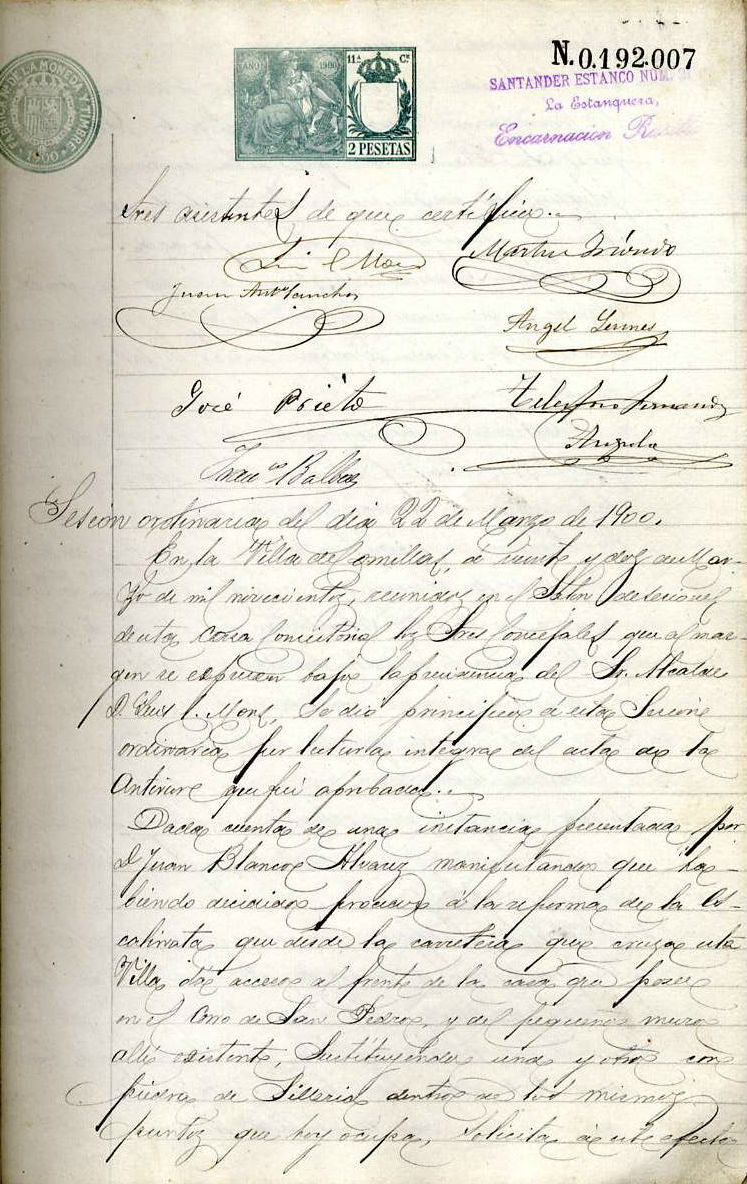 N.0.192.007
FABRICA DE LA MONEDA Y TIMBRE
1900
AÑO 1900
11ª Cº
2 PESETAS
SANTANDER ESTANCO NUM.
La Estanquera,
Encarnacion
tres asistentes de que certifico.
Martin Iriondo
Juan Antº Sanchez
Angel
José Prieto
Telesforo Fernandez
Balbas
Sesion ordinaria del dia 22 de Marzo de 1900.
En la Villa de Comillas, á veinte y dos de Mar-
zo de mil novecientos, reunidos en el Salon de sesiones
de esta Casa Consistorial los Sres Concejales que al mar-
gen se espresan bajo la presidencia del Sr. Alcalde
D. Luis C. Mons, se dio principio á esta Sesion
ordinaria por lectura integra del acta de la
Anterior que fué aprobada.
Dada cuenta de una instancia presentada por
D Juan Blanco Alvarez manifestando que ha-
biendo decidido proceder á la reforma de la Es-
calinata que desde la carretera que cruza esta
Villa dá acceso al frente de la casa que posee
en el Corro de San Pedro, y del pequeño muro
alli existente, Sustituyendo uno y otro con
piedra de Silleria dentro de los mismos
puntos que hoy ocupa, solicita á este efecto